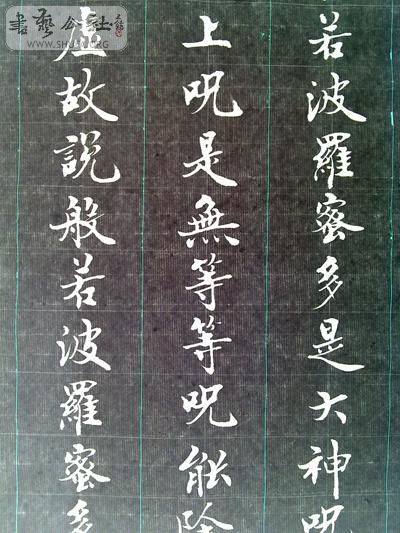 若波羅蜜多是大神呪
上呪是無等等呪能除
虛故說般若波羅蜜多
書藝公社
WWW.SHUFA.ORG